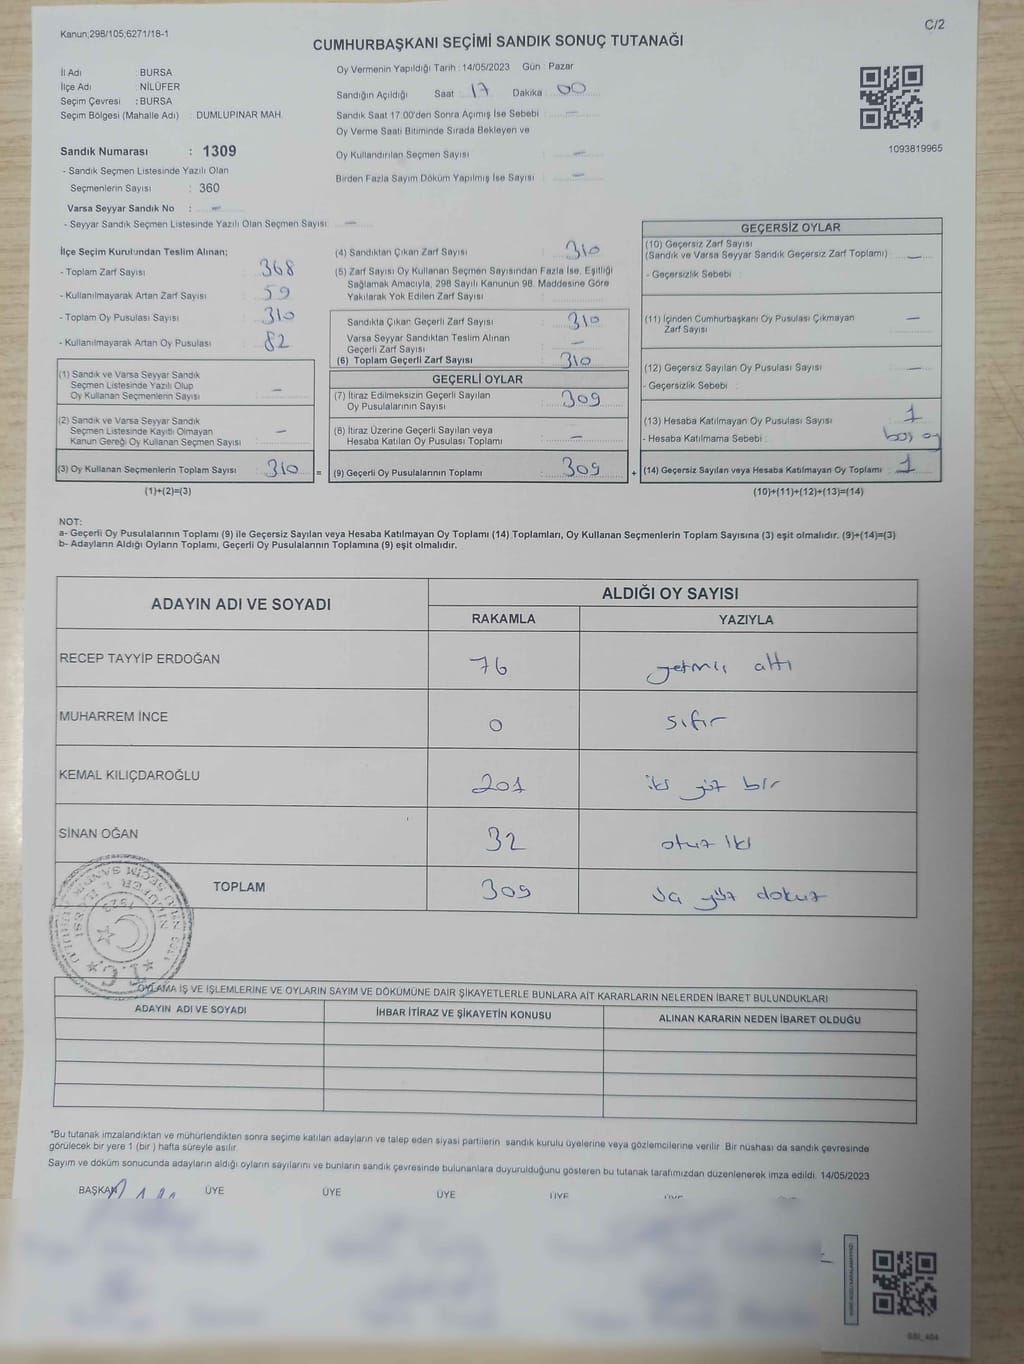 Kanun;298/105,6271/18-1
C/2
CUMHURBAŞKANI SEÇİMİ SANDIK SONUÇ TUTANAĞI
İl Adı : BURSA
İlçe Adı : NİLÜFER
Seçim Çevresi : BURSA
Seçim Bölgesi (Mahalle Adı) : DUMLUPINAR MAH.
Oy Vermenin Yapıldığı Tarih : 14/05/2023 Gün : Pazar
Sandığın Açıldığı Saat : 17 Dakika : 00
Sandık Saat 17.00'den Sonra Açımış İse Sebebi : —
Oy Verme Saati Bitiminde Sırada Bekleyen ve
Oy Kullandırılan Seçmen Sayısı : —
Birden Fazla Sayım Döküm Yapılmış İse Sayısı : —
1093819965
Sandık Numarası : 1309
- Sandık Seçmen Listesinde Yazılı Olan
Seçmenlerin Sayısı : 360
Varsa Seyyar Sandık No : —
- Seyyar Sandık Seçmen Listesinde Yazılı Olan Seçmen Sayısı : —
İlçe Seçim Kurulundan Teslim Alınan;
- Toplam Zarf Sayısı : 368
- Kullanılmayarak Artan Zarf Sayısı : 59
- Toplam Oy Pusulası Sayısı : 310
- Kullanılmayarak Artan Oy Pusulası : 82
(1) Sandık ve Varsa Seyyar Sandık
Seçmen Listesinde Yazılı Olup
Oy Kullanan Seçmenlerin Sayısı : —
(2) Sandık ve Varsa Seyyar Sandık
Seçmen Listesinde Kayıtlı Olmayan
Kanun Gereği Oy Kullanan Seçmen Sayısı : —
(3) Oy Kullanan Seçmenlerin Toplam Sayısı : 310 =
(1)+(2)=(3)
(4) Sandıktan Çıkan Zarf Sayısı : 310
(5) Zarf Sayısı Oy Kullanan Seçmen Sayısından Fazla İse, Eşitliği
Sağlamak Amacıyla, 298 Sayılı Kanunun 98. Maddesine Göre
Yakılarak Yok Edilen Zarf Sayısı :
Sandıkta Çıkan Geçerli Zarf Sayısı : 310
Varsa Seyyar Sandıktan Teslim Alınan
Geçerli Zarf Sayısı : —
(6) Toplam Geçerli Zarf Sayısı : 310
GEÇERLİ OYLAR
(7) İtiraz Edilmeksizin Geçerli Sayılan
Oy Pusulalarının Sayısı : 309
(8) İtiraz Üzerine Geçerli Sayılan veya
Hesaba Katılan Oy Pusulası Toplamı : —
(9) Geçerli Oy Pusulalarının Toplamı : 309 +
GEÇERSİZ OYLAR
(10) Geçersiz Zarf Sayısı
(Sandık ve Varsa Seyyar Sandık Geçersiz Zarf Toplamı) : —
- Geçersizlik Sebebi :
(11) İçinden Cumhurbaşkanı Oy Pusulası Çıkmayan
Zarf Sayısı : —
(12) Geçersiz Sayılan Oy Pusulası Sayısı : —
- Geçersizlik Sebebi :
(13) Hesaba Katılmayan Oy Pusulası Sayısı : 1
- Hesaba Katılmama Sebebi : boş oy
(14) Geçersiz Sayılan veya Hesaba Katılmayan Oy Toplamı : 1
(10)+(11)+(12)+(13)=(14)
NOT:
a- Geçerli Oy Pusulalarının Toplamı (9) ile Geçersiz Sayılan veya Hesaba Katılmayan Oy Toplamı (14) Toplamları, Oy Kullanan Seçmenlerin Toplam Sayısına (3) eşit olmalıdır. (9)+(14)=(3)
b- Adayların Aldığı Oyların Toplamı, Geçerli Oy Pusulalarının Toplamına (9) eşit olmalıdır.
ADAYIN ADI VE SOYADI
ALDIĞI OY SAYISI
RAKAMLA YAZIYLA
RECEP TAYYİP ERDOĞAN 76 yetmiş altı
MUHARREM İNCE 0 sıfır
KEMAL KILIÇDAROĞLU 201 iki yüz bir
SİNAN OĞAN 32 otuz iki
TOPLAM 309 üç yüz dokuz
T.C.
1923
OYLAMA İŞ VE İŞLEMLERİNE VE OYLARIN SAYIM VE DÖKÜMÜNE DAİR ŞİKAYETLERLE BUNLARA AİT KARARLARIN NELERDEN İBARET BULUNDUKLARI
ADAYIN ADI VE SOYADI İHBAR İTİRAZ VE ŞİKAYETİN KONUSU ALINAN KARARIN NEDEN İBARET OLDUĞU
*Bu tutanak imzalandıktan ve mühürlendikten sonra seçime katılan adayların ve talep eden siyasi partilerin sandık kurulu üyelerine veya gözlemcilerine verilir. Bir nüshası da sandık çevresinde
görülecek bir yere 1 (bir) hafta süreyle asılır.
Sayım ve döküm sonucunda adayların aldığı oyların sayılarını ve bunların sandık çevresinde bulunanlara duyurulduğunu gösteren bu tutanak tarafımızdan düzenlenerek imza edildi. 14/05/2023
BAŞKAN ÜYE ÜYE ÜYE ÜYE ÜYE